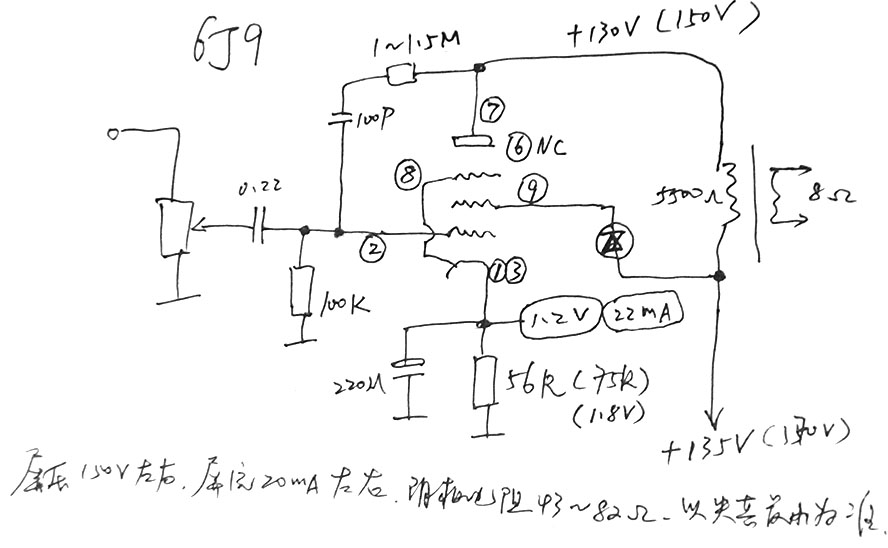 6J9
1~1.5M
+130V (150V)
100P
⑦
⑥ NC
⑧
⑨
0.22
5500Ω
8Ω
②
①③
100K
1.2V
22mA
220μ
56R (75R)
(1.8V)
+135V (170V)
屏压150V左右.屏流20mA左右.阴极电阻43~82Ω.以失真最小为准.